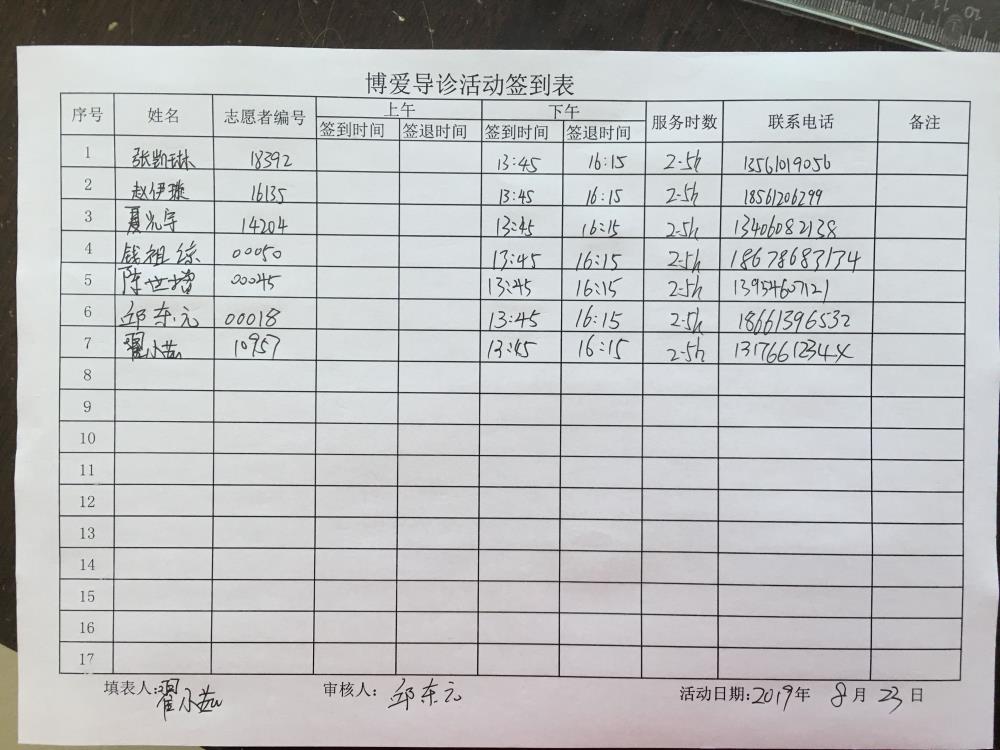 博爱导诊活动签到表
序号 姓名 志愿者编号 上午 下午 服务时数 联系电话 备注
签到时间 签退时间 签到时间 签退时间
1 张凯琳 18392 13:45 16:15 2.5h 13561019056
2 赵伊璇 16135 13:45 16:15 2.5h 18561206299
3 夏光宇 14204 13:45 16:15 2.5h 13406082138
4 钱祖综 00050 13:45 16:15 2.5h 18678683134
5 陈世 00045 13:45 16:15 2.5h 13954607121
6 邱东元 00018 13:45 16:15 2.5h 18661396532
7 翟小茹 10957 13:45 16:15 2.5h
8
9
10
11
12
13
14
15
16
17
填表人:翟小茹 审核人:邱东元 活动日期:2019年 8月 23日